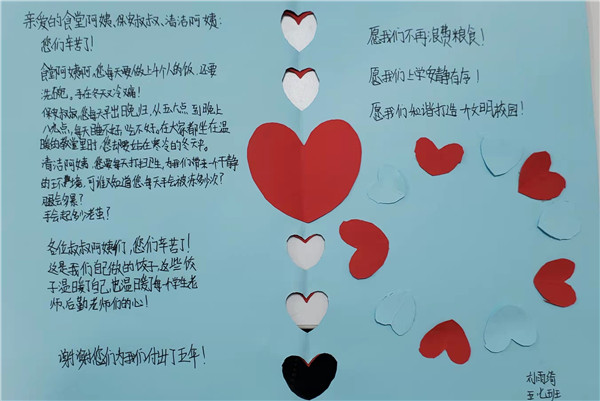 亲爱的食堂阿姨、保安叔叔、清洁阿姨:
您们辛苦了!
食堂阿姨啊,您每天要做上千个人的饭,还要
洗碗,手在冬天又冷痛!
保安叔叔,您每天早出晚归,从五六点,到晚上
八九点,每天睡不好,吃不好。在大家都坐在温
暖的教室里时,您却要站在寒冷的冬天中。
清洁阿姨,您要每天打扫卫生,为我们带来一个干静
的环境,可谁又知道您每天手会被冻多少次?
腿会多累?
手会起多少老茧?
各位叔叔阿姨们,您们辛苦了!
这是我们自己做的饺子,这些饺
子温暖了自己,也温暖了每个学生老
师、后勤老师们的心!
谢谢您们为我们付出了五年!
愿我们不再浪费粮食!
愿我们上学安静有序!
愿我们和谐打造一个文明校园!
刘雨倩
五·七班